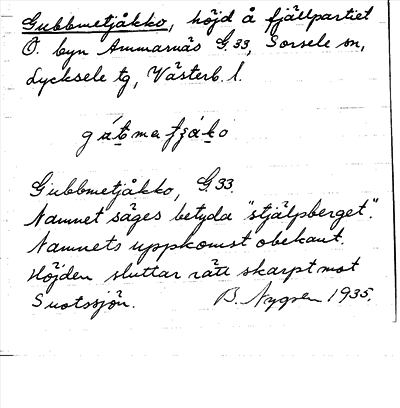 Gubbmetjåkko, höjd å fjällpartiet
Ö. byn Ammarnäs G.33, Sorsele sn,
Lycksele tg, Västerb. l.
gŭt̬metjåko
Gubbmetjåkko, G.33.
Namnet säges betyda "stjälpberget".
Namnets uppkomst obekant.
Höjden sluttar rätt skarpt mot
Suotssjön. B. Nygren 1935.